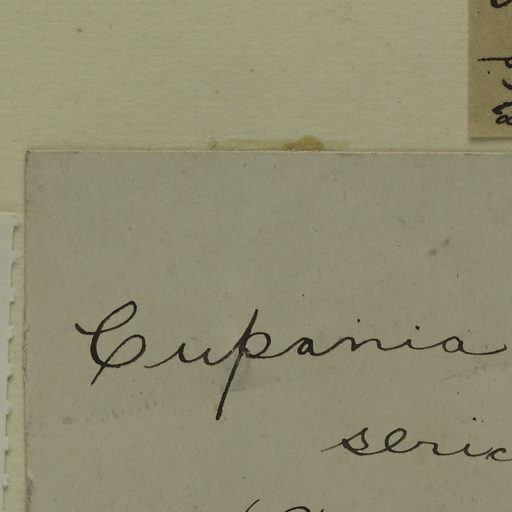 Cupania
seric